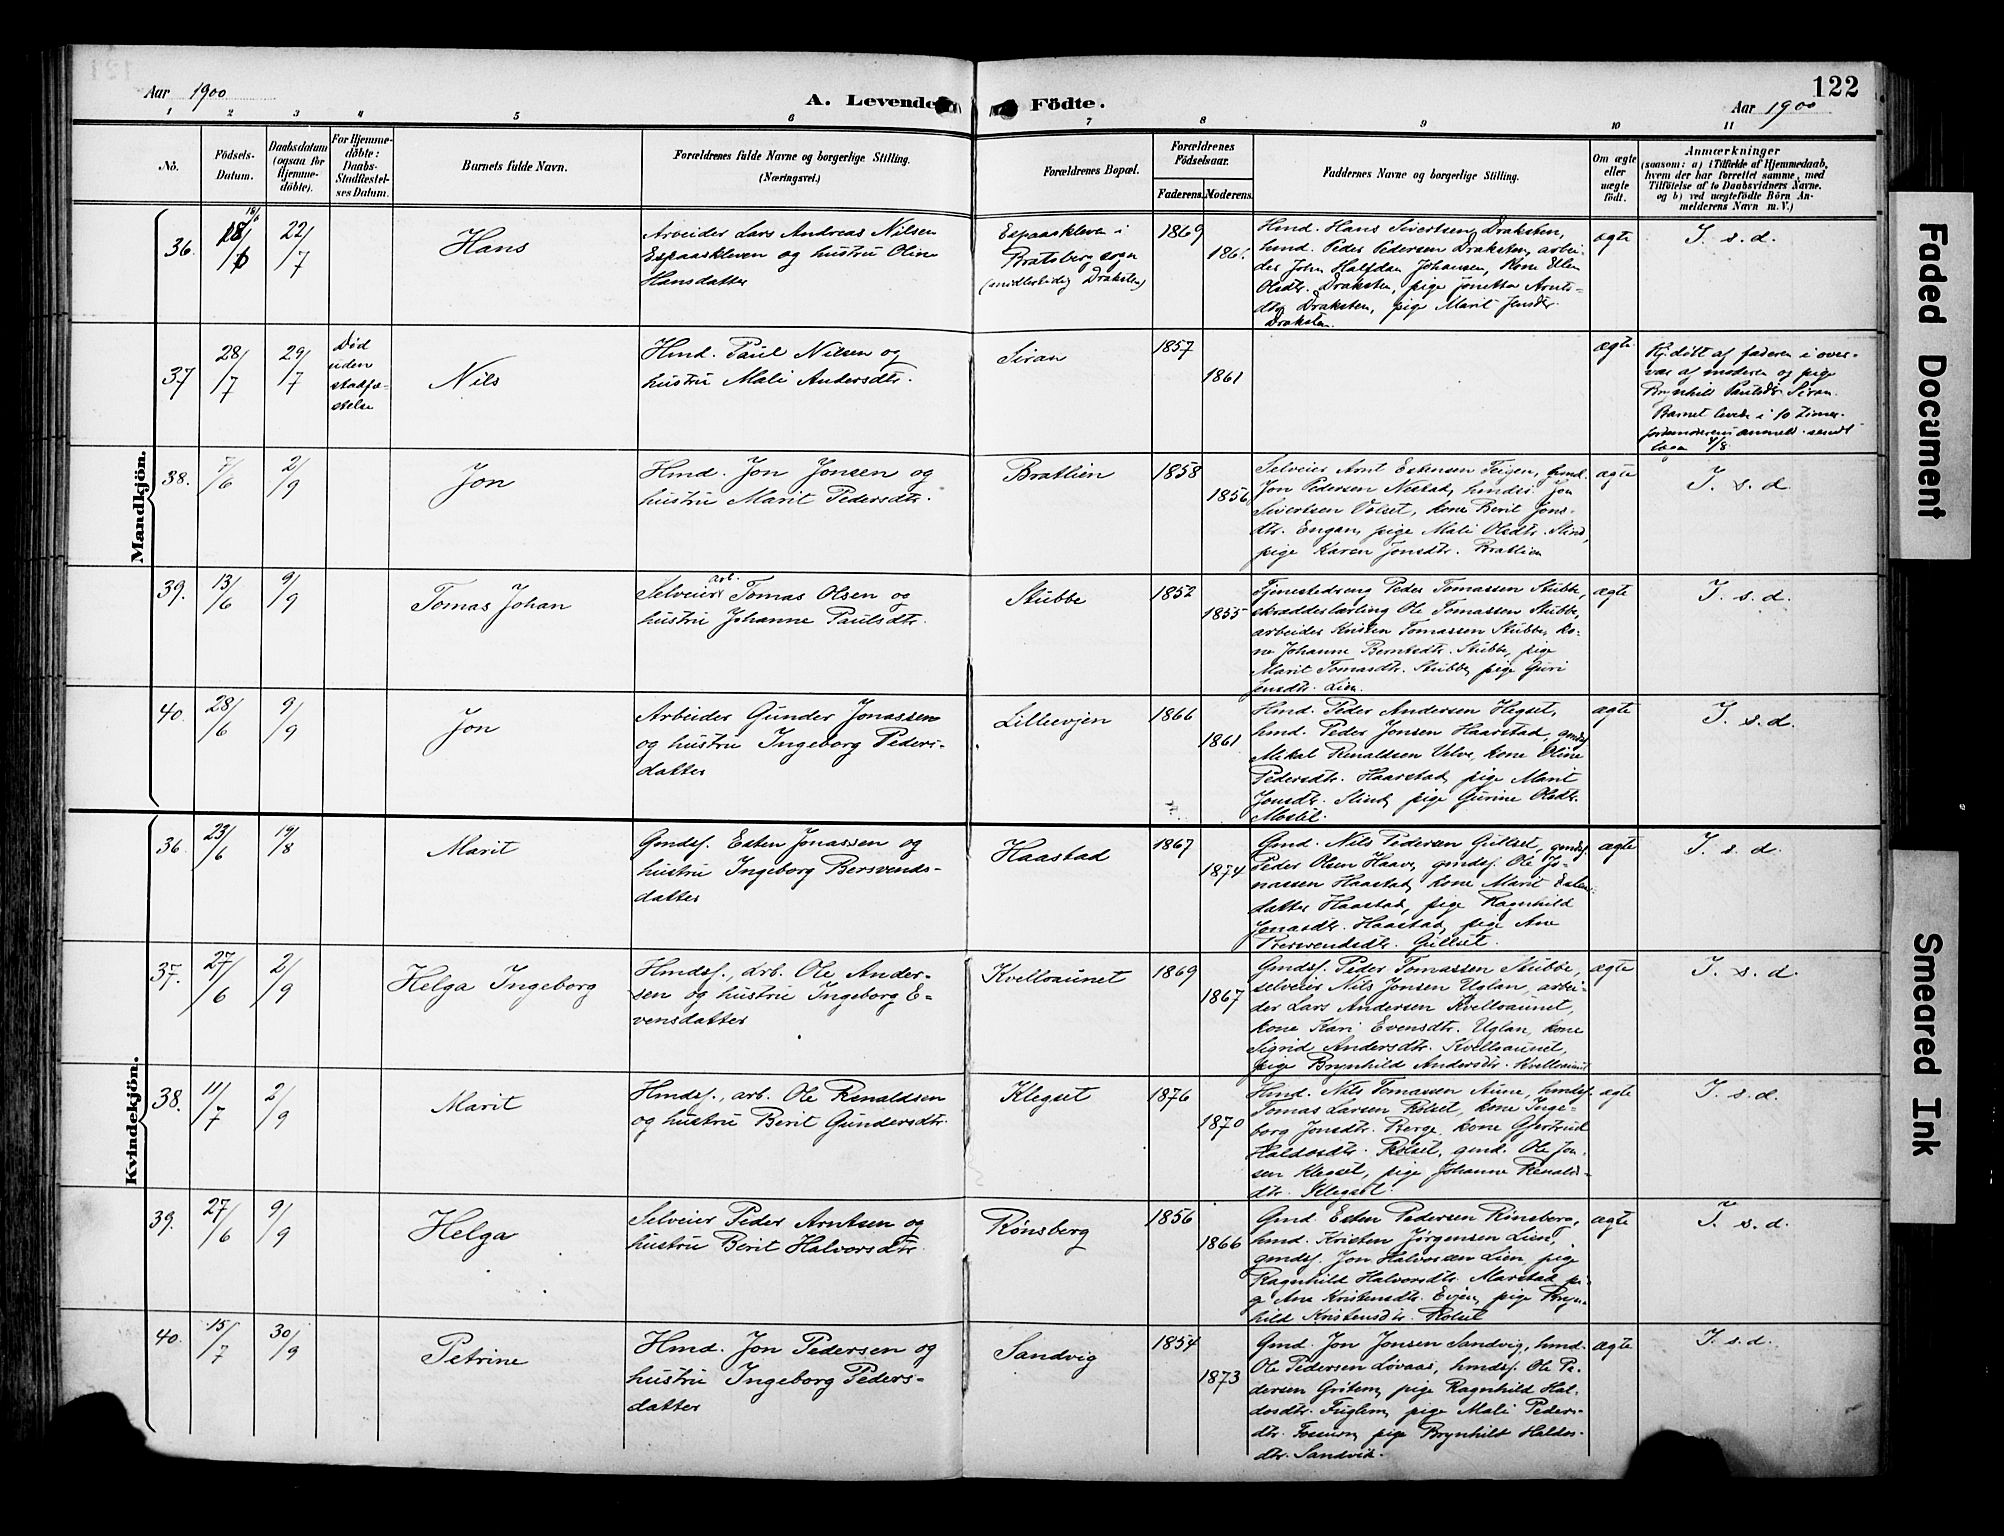 122
Aar 1900
A. Levende Födte.
Aar 1900
1 2 3 4 5 6 7 8 9 10 11
No.
Födsels-
Datum.
Daabsdatum
(ogsaa for
Hjemme-
döbte).
For Hjemme-
döbte:
Daabs-
Stadfæstel-
ses Datum.
Barnets fulde Navn.
Forældrenes fulde Navne og borgerlige Stilling.
(Næringsvei.)
Forældrenes Bopæl.
Forældrenes
Födselsaar.
Faderens. Moderens.
Faddernes Navne og borgerlige Stilling.
Om ægte
eller
uægte
født.
Anmærkninger
(saasom: a) i Tilfælde af Hjemmedaab,
hvem der har forrettet samme, med
Tilföielse af to Daabsvidners Navne.
og b) ved uægtefödte Börn An-
melderens Navn m. V.)
Mandkjön.
36. 18/6 22/7
Hans
Arbeider Lars Andreas Nilsen
Espaaskleven og hustru Oline
Hansdatter
Espaaskleven i
Bratsberg sogn
(midlertidig Draksten)
1869
Hmd. Hans Sivertsen Draksten,
hmd. Peder Pedersen Draksten, arbei-
der John Halfdan Johansen, kone Ellen
Olsdtr. Draksten, pige Jonetta Arnts-
dtr Draksten, pige Marit Jensdr.
Draksten
ægte
I. s. d.
37 28/7 29/7
Død
uden
stadfæ-
stelse
Nils
Hmd. Paul Nilsen og
hustru Mali Andersdtr.
Siran
1857
1861
ægte
Hj.døbt af faderen i over-
vær af moderen og pige
Brynhild Paulsdr Siran.
Barnet levede i 10 timer.
38. 7/6 2/9
Jon
Hmd. Jon Jonsen og
hustru Marit Pedersdtr.
Bratlien
1858
1856
Selveier Arnt Estensen Teigen, gmd.
Jon Pedersen Nestad, hmds. Jon
Sivertsen Volset, kone Berit Jons-
dtr. Engan, pige Mali Olsdtr. Slind,
pige Karen Jonsdtr. Bratlien
ægte
I. s. d.
39. 13/6 9/9
Tomas Johan
Selveier arb. Tomas Olsen og
hustru Johanne Paulsdtr.
Stubbe
1852
1855
Tjenestedreng Peder Tomassen Stubbe,
skrædderlærling Ole Tomassen Stubbe,
arbeider Kristen Tomassen Stubbe, ko-
ne Johanne Berntsdtr. Stubbe, pige
Marit Tomasdtr. Stubbe, pige Guri
Jensdtr. Lien.
ægte
I. s. d.
40. 28/6 9/9
Jon
Arbeider Gunder Jonassen
og hustru Ingeborg Peders-
datter
Lilleevjen
1866
1861
Hmd. Peder Andersen Hegset,
hmd. Peder Jonsen Haarstad, gmdsf.
Mikal Renaldsen Velve, kone Oline
Pedersdtr. Haarstad, pige Marit
Jonsdtr. Slind, pige Gurine Olsdtr.
Moslil.
ægte
I. s. d.
Kvindekjön.
36. 23/6 19/8
Marit
Gmdsf. Esten Jonassen og
hustru Ingeborg Bersvends-
datter
Haastad
1867
1874
Gmd. Nils Pedersen Gullset, gmdsf.
Peder Olsen Haave, gmdsf. Ole Jo-
nassen Haastad, kone Marit Esten-
datter Haastad, pige Ragnhild
Jonasdtr. Haastad, pige Ane
Bersvendsdtr. Gullset.
ægte
I. s. d.
37. 27/6 2/9
Helga Ingeborg
Hmdsf., arb. Ole Ander-
sen og hustru Ingeborg E-
vensdatter
Kvelloaunet
1869
1867
Gmdsf. Peder Tomassen Stubbe,
selveier Nils Jonsen Uglan, arbei-
der Lars Andersen Kvelloaunet,
kone Kari Evensdtr. Uglan, kone
Sigrid Andersdtr. Kvelloaunet,
pige Brynhild Andersdtr. Kvelloaunet
ægte
I. s. d.
38. 11/7 2/9
Marit
Hmdsf., arb. Ole Renaldsen
og hustru Berit Gundersdtr.
Klegset
1876
1870
Hmd. Nils Tomassen Aune, hmdsf.
Tomas Larsen Rolset, kone Inge-
borg Jonsdtr. Berge, kone Gjertrud
Haldosdtr. Rolset, gmd. Ole Jon-
sen Klegset, pige Johanne Renalds-
dtr. Klegset.
ægte
I. s. d.
39. 27/6 9/9
Helga
Selveier Peder Arntsen og
hustru Berit Halvorsdtr.
Rønsberg
1856
1866
Gmd. Esten Pedersen Rønsberg,
hmd. Kristen Jørgensen Lien,
gmdsf. Jon Halvorsen Lien, pige
Ragnhild Halvorsdtr. Marstad, pi-
ge Ane Kristensdtr. Evjen, pige Bryn-
hild Kristensdtr. Rolset
ægte
I. s. d.
40. 15/7 30/9
Petrine
Hmd. Jon Pedersen og
hustru Ingeborg Peders-
datter
Sandvig
1854
1873
Gmd. Jon Jonsen Sandvig, hmd.
Ole Pedersen Løvaas, hmdsf. Ole Pe-
dersen Gritem, pige Ragnhild Hal-
dosdtr. Fuglem, pige Mali Peders-
dtr. Fossum, pige Brynhild Haldos-
dtr. Sandvik.
ægte
I. s. d.
Faded Document
Smeared Ink